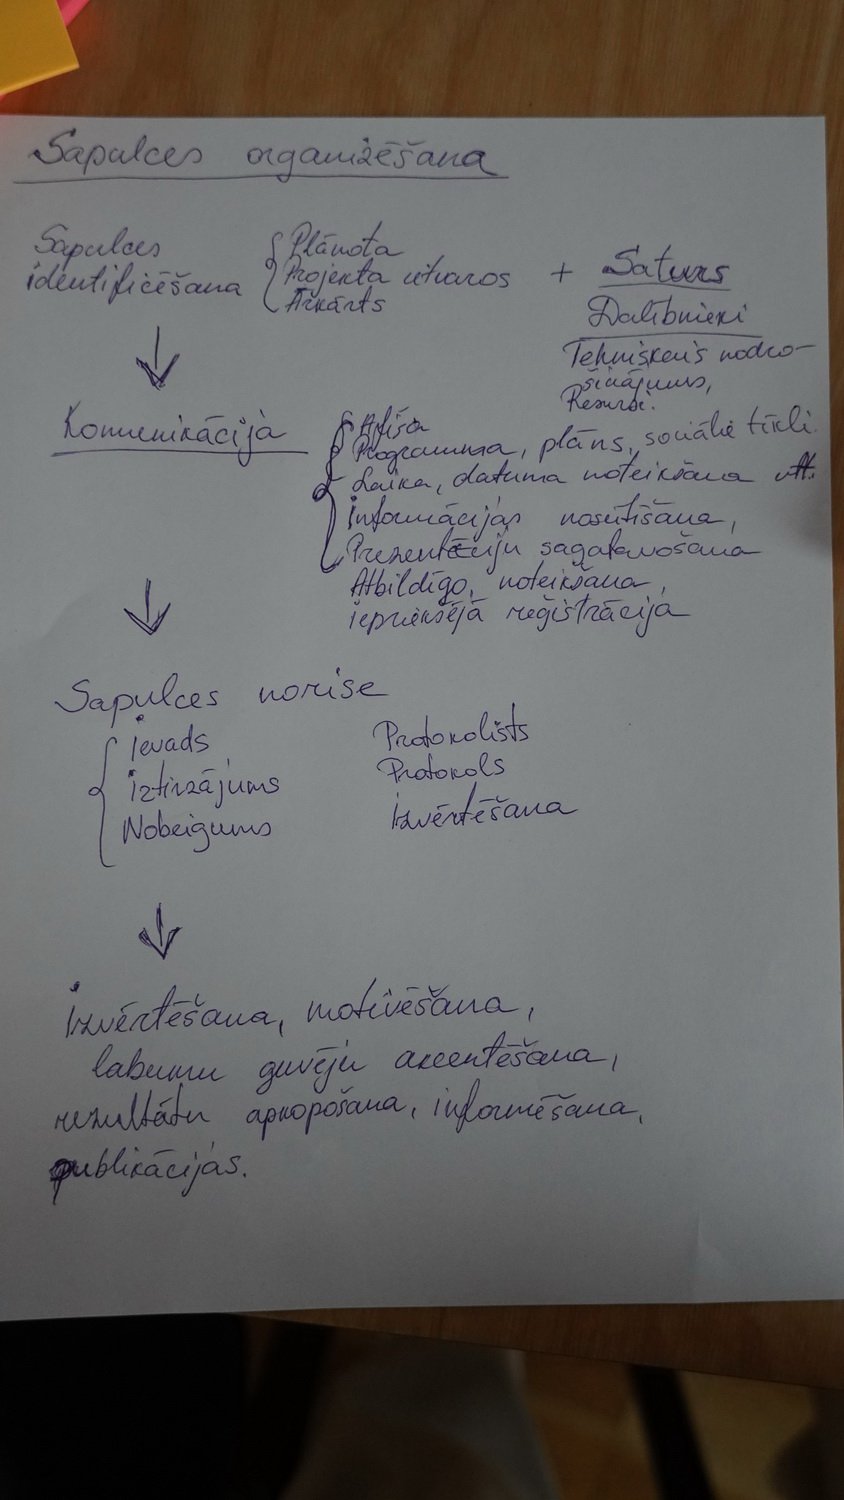 Sapulces organizēšana
Sapulces
identificēšana
Plānota
Projekta ietvaros
Ārkārts
+ Saturs
Dalībnieki
Tehniskais nodro-
šinājums,
Resursi.
Komunikācija
Afiša
Programma, plāns, sociālie tīkli.
Laika, datuma noteikšana
Informācijas nosūtīšana,
Prezentāciju sagatavošana
Atbildīgo, noteikšana,
iepriekšējā reģistrācija
Sapulces norise
Ievads
Iztirzājums
Nobeigums
Protokolists
Protokols
Izvērtēšana
Izvērtēšana, motivēšana,
labumu guvēju akcentēšana,
rezultātu apkopošana, informēšana,
publikācijas.